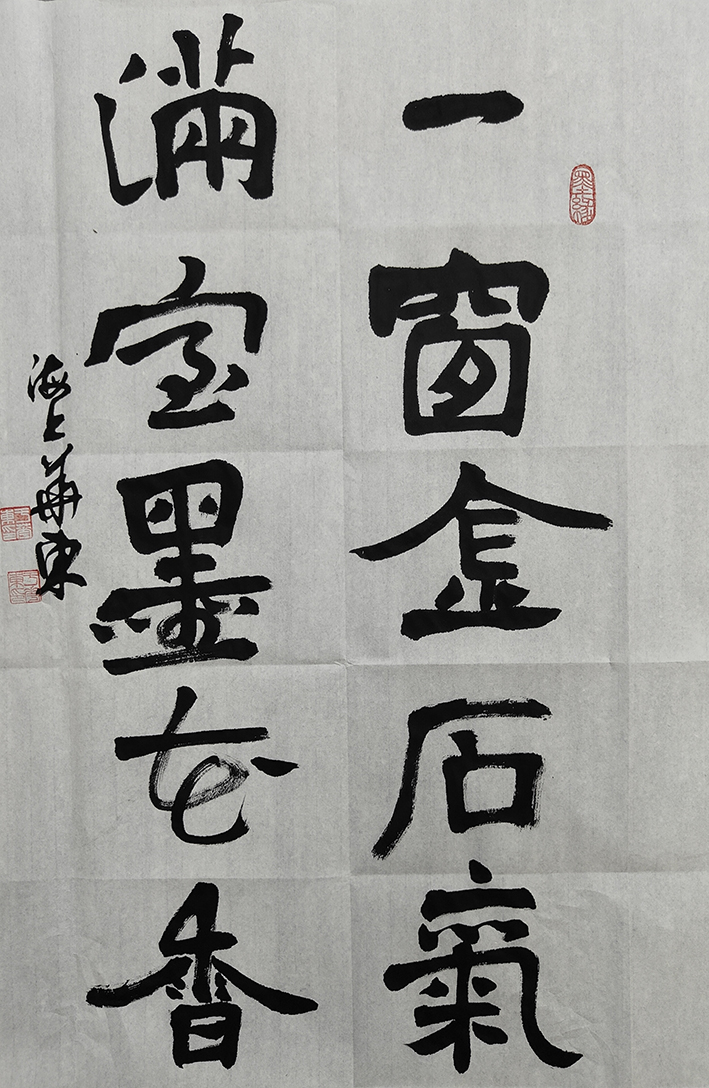 一窗金石氣
滿室墨花香
海上華東
墨緣